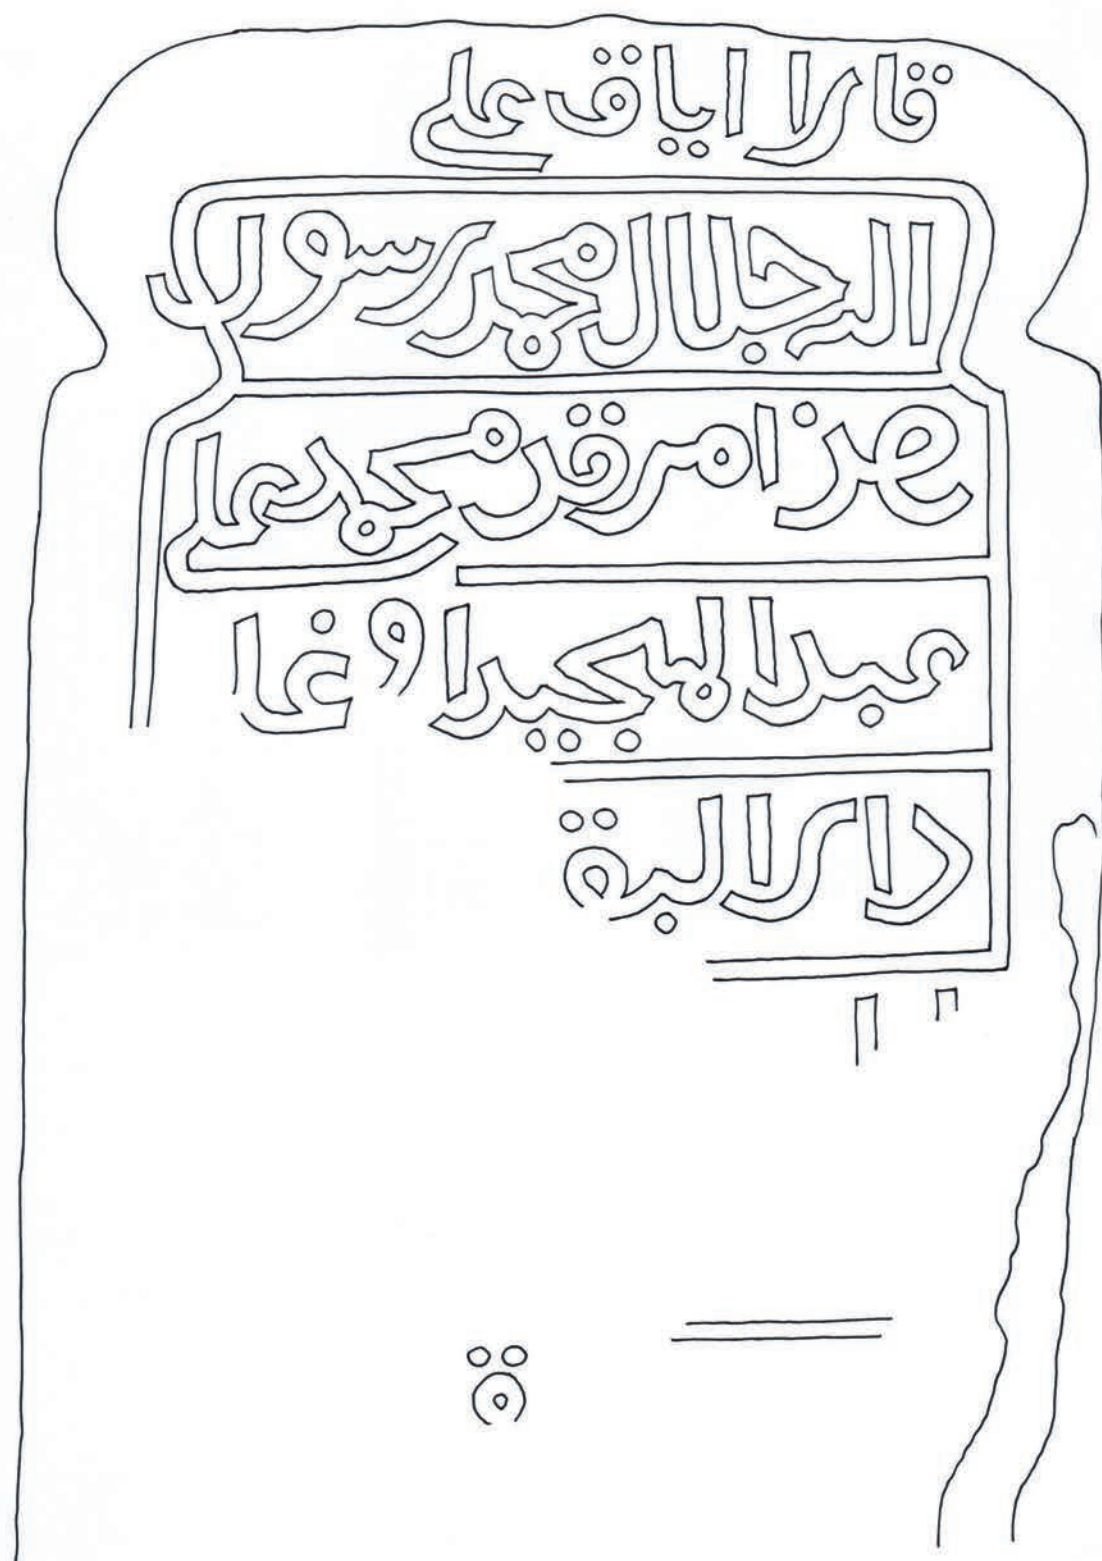 قارا اياق علي
جلال محمد رسول
هزا مرقد محمد علي
عبد المجيد اوغا
دار